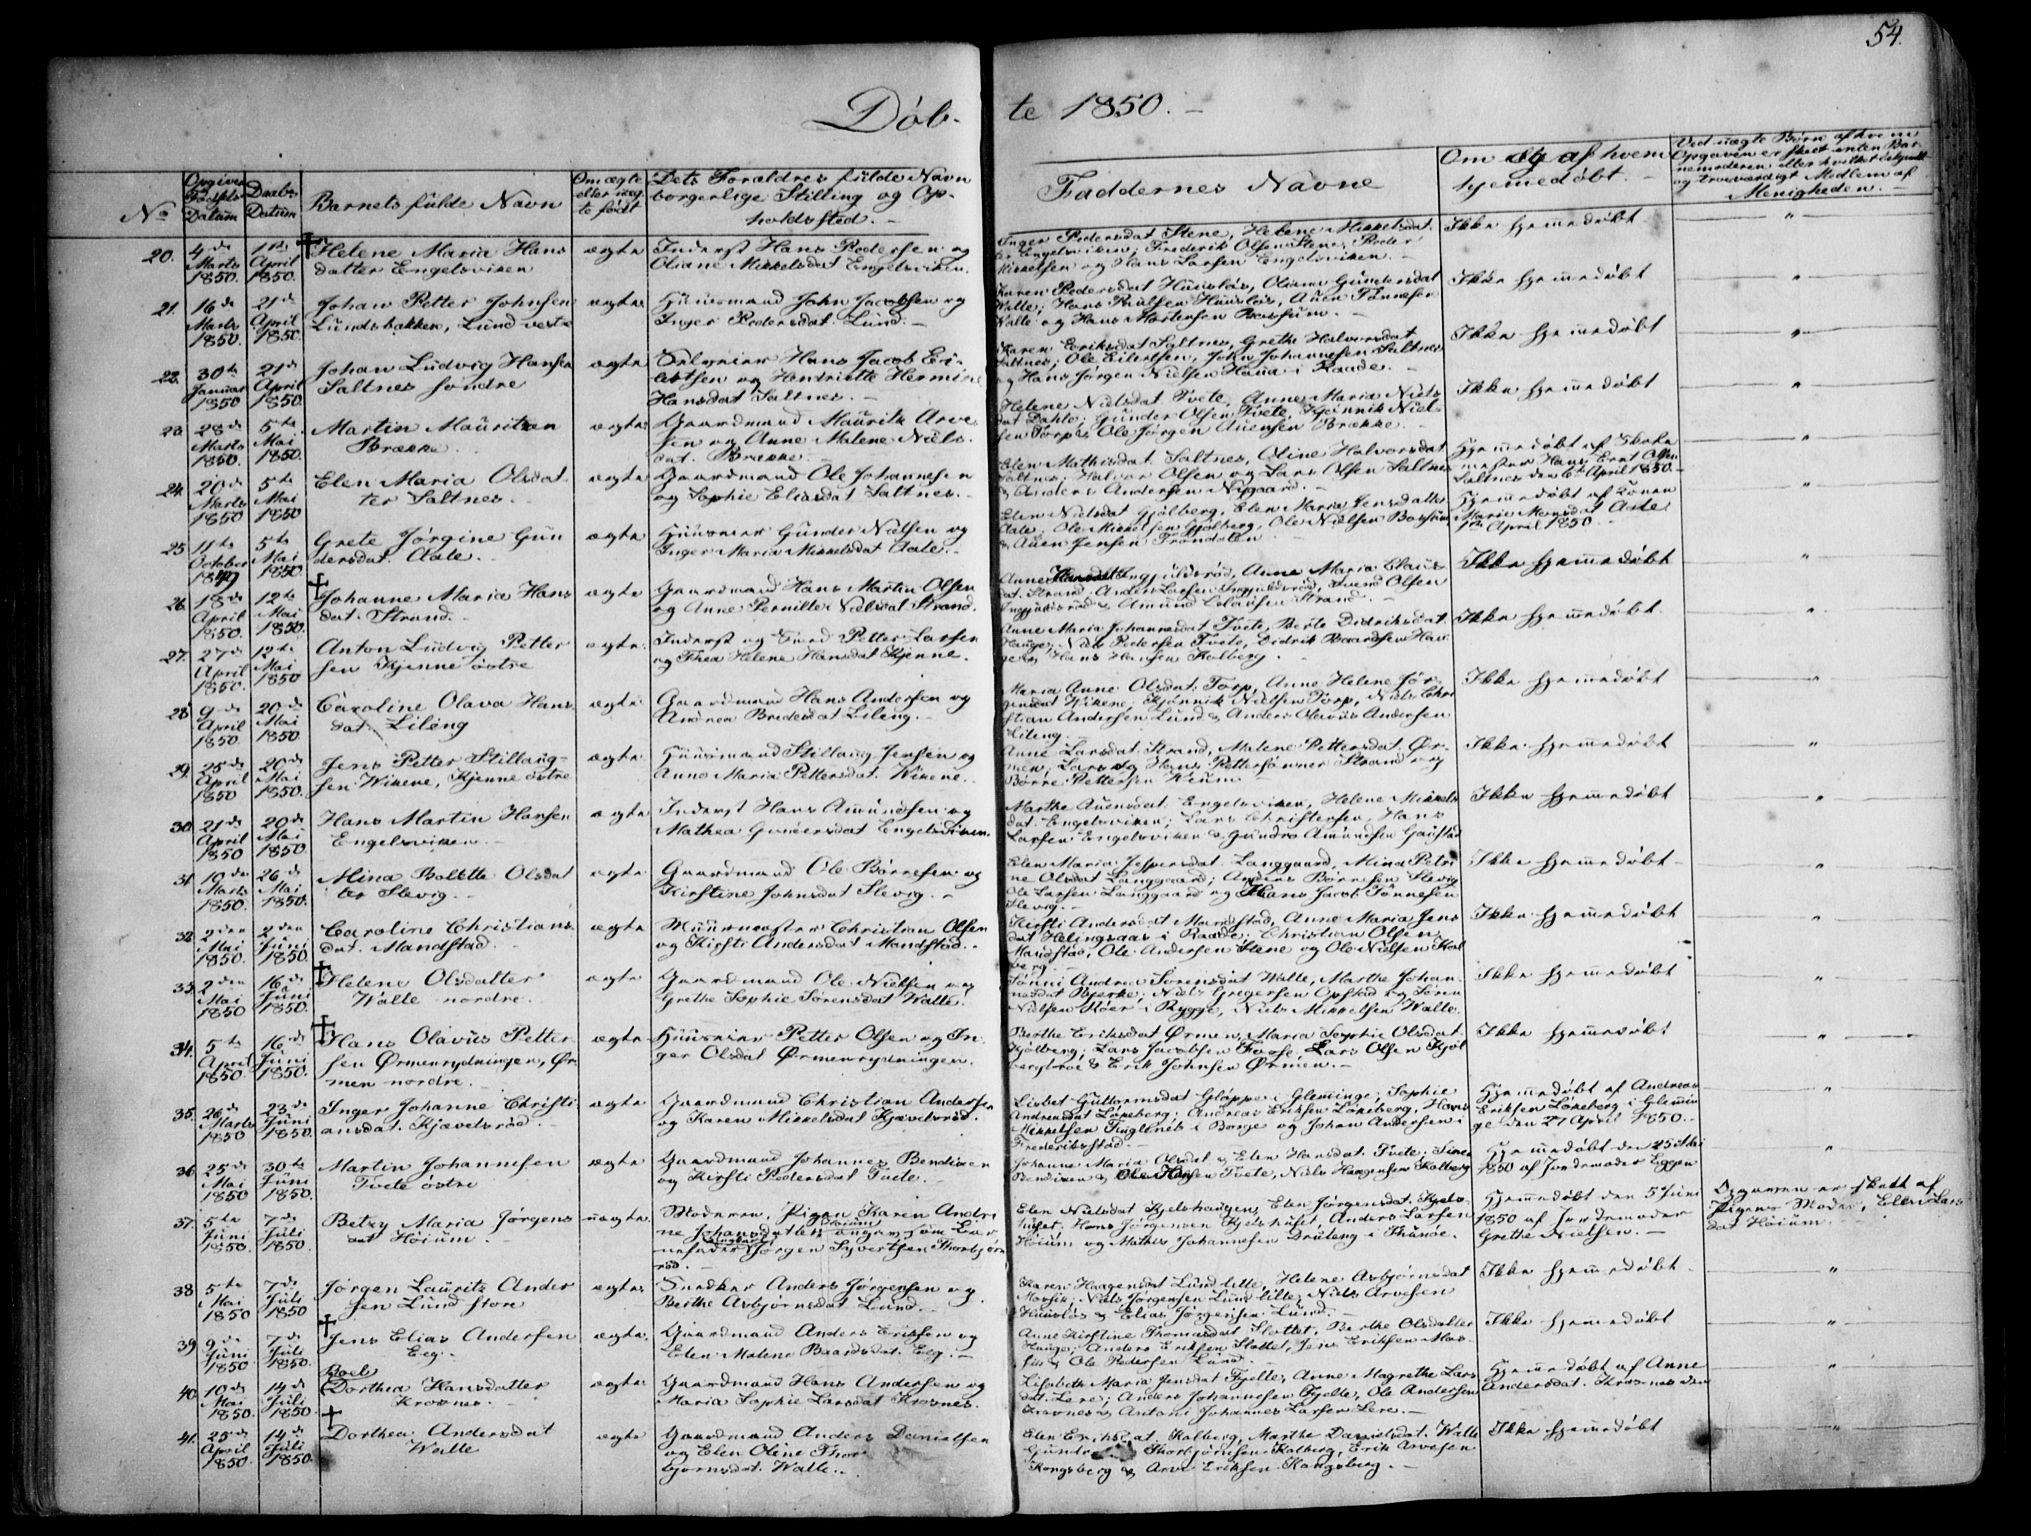 54.
Døb-
te 1850.
No
Opgiven Fødsels Datum
Daabs Datum
Barnets fulde Navn
Om ægte eller uægte født
Dets Forældres fulde Navn
borgerlige Stilling og Op-
holdssted.
Faddernes Navne
Om og af hvem
hjemedøbt.
Ved uægte Børn af hvem
Opgaven er skeet enten Bar-
nemoderen eller hvilket
og troværdigt Medlem af
Menigheden.
20. 4de Marts 1850. 1ste April 1850.
Helene Maria Hans
datter Engelsviken
ægte
Inderst Hans Pedersen og
Oliane Mikkelsdat Engelsviken.
Inger Pedersdat Stene, Helene Mikkelsdat
ter Engelsviken; Frederik Olsen Stene, Peder
Mikkelsen og Hans Larsen Engelsviken.
Ikke hjemmedøbt
21. 16de Marts 1850. 21de April 1850.
Johan Petter Johnsen
Lundsbakken, Lund vestre
ægte
Huusmand John Jacobsen og
Inger Pedersdat. Lund.
Karen Pedersdat Huusløs, Oliane Gundersdat
Walle; Hans Poulsen Huusløs, Auen Tønnesen
Walle og Hans Mortensen Bossum.
Ikke hjemmedøbt
22. 30te Januar 1850 21de April 1850.
Johan Ludvig Hansen
Saltnes søndre
ægte
Selveier Hans Jacob Ei-
lertsen og Henriette Hermine
Hansdat Saltnes.
Karen Eriksdat Saltnes, Grethe Halvorsdat
Saltnes; Ole Eilertsen, John Johannesen Saltnes
og Hans Jørgen Nielsen Haua i Raade.
Ikke hjemmedøbt
23. 28de Marts 1850. 5te Mai 1850.
Martin Mauritzen
Brække
ægte
Gaardmand Mauritz Arve
sen og Anne Malene Niels-
dat. Brække.
Helene Nielsdat Tvete, Anne Maria Niels
dat Dahle; Gunder Olsen Tvete, Kjønnik Niel
sen Torp & Ole Jørgen Auensen Brække.
Ikke hjemmedøbt
24. 20de Marts 1850 5te Mai 1850
Elen Maria Olsdat
ter Saltnes.
ægte
Gaardmand Ole Johannesen
og Sophie Eliasdat Saltnes.
Elen Mathisdat Saltnes, Oline Halvorsdat
Saltnes; Halvor Olsen og Lars Olsen Saltnes
& Anders Andersen Nygaard.
Hjemmedøbt af Skole
mester Hans Ernt Olsen
Saltnes den 6te April 1850.
25 11te October 1849 5te Mai 1850
Grete Jørgine Gun
dersdat Aale.
ægte
Huuseier Gunder Nielsen og
Inger Maria Mikkelsdat Aale.
Elen Nielsdat Gjølberg, Elen Maria Jensdatter
Aale, Ole Mikkelsen Gjølberg, Ole Nielsen Bossum
& Auen Jensen Trøndalen
Hjemmedøbt af Konen
Marie Monsdat Aale
1ste April 1850.
26. 18de April 1850. 12te Mai 1850.
Johanne Maria Hans
dat. Strand.
ægte
Gaardmand Hans Martin Olsen
og Anne Pernille Nielsdat Strand.
Anne Ingjuldsrød, Anne Maria Claus
dat. Strand. Anders Larsen Ingjuldsrød, Svend Olsen
Ingjuldsrød & Amund Clausen Strand.
Ikke hjemmedøbt
27. 27de April 1850. 12te Mai 1850
Anton Ludvig Petter
sen Kjenne østre
ægte.
Inderst og Smed Petter Larsen
og Thea Helene Hansdat Kjenne.
Anne Maria Johannesdat Tvete, Berte Didriksdat
Hauge; Niels Pedersen Tvete, Didrik Baardsen Hau
ge & Hans Hansen Kolberg.
Ikke hjemmedøbt
28. 9de April 1850 20de Mai 1850
Caroline Olava Hans
dat. Liling
ægte
Gaardmand Hans Andersen og
Andrea Bredesdat Liling.
Maria Anne Olsdat. Torp, Anne Helene Jør
gensdat Wikene; Kjønnik Nielsen Torp, Niels Chri
stian Andersen Lund & Anders Olavus Andersen
Liling.
Ikke hjemmedøbt
29. 25de April 1850 20de Mai 1850.
Jens Petter Stillaug-
sen Wikene, Kjenne østre
ægte.
Huusmand Stillaug Jensen og
Anne Maria Pettersdat. Wikene.
Anne Larsdat. Strand, Malene Pettersdat. Ør-
men, Lars og Hans Pettersønner Strand og
Børre Pettersen Wium
Ikke hjemmedøbt
30. 21de April 1850 20de Mai 1850.
Hans Martin Hansen
Engelsviken
ægte
Inderst Hans Amundsen og
Mathea Gundersdat Engelsviken.
Marthe Auensdat Engelsviken, Helene Mikkels
dat. Engelsviken; Lars Christensen, Hans
Larsen Engelsviken & Gundro Amundsen Gaustad
Ikke hjemmedøbt
31. 10de Marts 1850. 26de Mai 1850.
Mina Bolette Olsdat
ter Slevig.
ægte
Gaardmand Ole Børresen og
Kirstine Johnsdat Slevig.
Elen Maria Jespersdat. Langgaard, Mina Petri
ne Olsdat Langgaard; Anders Børresen Slevig
Ole Larsen Langgaard og Hans Jacob Tønnesen
Slevig.
Ikke hjemmedøbt
32. 2den Mai 1850. 2den Juni 1850.
Caroline Christians
dat. Mandstad.
ægte
Muurmester Christian Olsen
og Kirsti Andersdat Mandstad.
Kirsti Andersdat Mandstad, Anne Maria Jens
dat Helingsaas i Raade. Christian Olsen
Mandstad, Ole Andersen Stene og Ole Nilsen Kol
berg.
Ikke hjemmedøbt
33. 2den Mai 1850 16de Juni 1850.
Helene Olsdatter
Walle nordre.
ægte
Gaardmand Ole Nielsen og
Grethe Sophie Sørensdat Walle.
Tønni Andrea Sørensdat Walle, Marthe Johan-
nesdat Bjerke; Niels Gregersen Opstad & Søren
Nielsen Kåer i Rygge, Niels Mikkelsen Walle.
Ikke hjemmedøbt
34. 5te April 1850. 16de Juni 1850.
Hans Olavus Petter
sen Ørmenrydningen, Ør-
men nordre.
ægte
Huuseier Petter Olsen og In-
ger Olsdat Ørmenrydningen.
Berthe Eriksdat Ørmen, Maria Sophie Olsdat.
Gjølberg; Lars Jacobsen Fosse, Lars Olsen Kjøl
bergbroe & Erik Johnsen Ørmen.
Ikke hjemmedøbt
35. 26de Marts 1850 23de Juni 1850.
Inger Johanne Christi
ansdat. Kjævelsrød.
ægte
Gaardmand Christian Andersen
og Karen Mikkelsdat Kjævelsrød.
Lisbet Guttormsdat Gloppe i Gleminge, Sophie
Andreasdat Løkeberg; Andreas Eriksen Løkeberg, Hans
Mikkelsen i Borge og Johan Andersen i
Frederiksstad.
Hjemmedøbt af Andreas
Eriksen Løkeberg i Glemmin
ge den 27 April 1850.
36. 25de Mai 1850 30te Juni 1850.
Martin Johannesen
Tvete østre
ægte
Gaardmand Johannes Bendixen
og Kirsti Pedersdat Tvete.
Johanne Maria Olsdat & Elen Hansdat. Tvete. Simen
Bendixen & Ole Hansen Tvete, Niels Haagensen Kolberg
Hjemmedøbt den 25 Mai
1850 af Jordemoder Eggen
37. 5te Juni 1850. 7de Juli 1850.
Betzy Maria Jørgens
dat Høium.
uægte.
Moderen, Pigen Karen Andri
ne Johansdatter Høium angav som Bar-
nefader Jørgen Syvertsen Thorbjørn
rød.
Elen Nielsdat Kjelshaugen, Elen Jørgensdat. Kjels-
huset, Hans Jørgensen Kjelshuset, Anders Larsen
Høium og Mathis Johannesen Drolling i Thunøe.
Hjemmedøbt den 5 Juni
1850 af Jordemoder
Grethe Nielsen.
Opgaven er skedt af
Pigens Moder, Elen Lars
dat Høium.
38 5te Mai 1850 7de Juli 1850
Jørgen Lauritz Ander
sen Lund store
ægte.
Snedker Anders Jørgensen og
Berthe Asbjørnsdat Lund.
Karen Haagensdat Lund lille, Helene Asbjørnsdat
Mosvik; Niels Jørgensen Lund lille, Niels Arvesen
Huusløs & Elias Jørgensen Lund.
Ikke hjemmedøbt
39. 9de Juni 1850 7de Juli 1850.
Jens Elias Andersen
Eeg.
ægte.
Gaardmand Anders Eriksen og
Elen Malene Baardsdat. Eeg.
Anne Kirstine Thomasdat Slottet, Berthe Olsdatter
Hauge; Anders Eriksen Slottet, Jens Eriksen Mos-
& Ole Pedersen Lund.
Ikke hjemmedøbt
40. 10de Mai 1850. 14de Juli 1850
Boel
Dorthea Hansdatter
Krosnes.
ægte.
Gaardmand Hans Andersen og
Maria Sophie Larsdat Krosnes.
Lisabeth Maria Jensdat Fjelle, Anne Magrethe Lars
dat. Lere; Anders Johannesen Fjelle, Ole Andersen
Krosnes & Antoni Johannes Larsen Lere.
Hjemmedøbt af Anne
Andersdat. Krosnes den
41. 25de April 1850. 14de Juli 1850.
Dorthea Andersdat
Walle
ægte
Gaardmand Anders Danielsen
og Elen Oline Thor
bjørnsdat. Walle.
Elen Eriksdat. Kolberg, Marthe Danielsdat. Walle
Thorbjørnsen Kolberg, Erik Arvesen
Kongsberg & Arve Eriksen Kongsberg.
Ikke hjemmedøbt